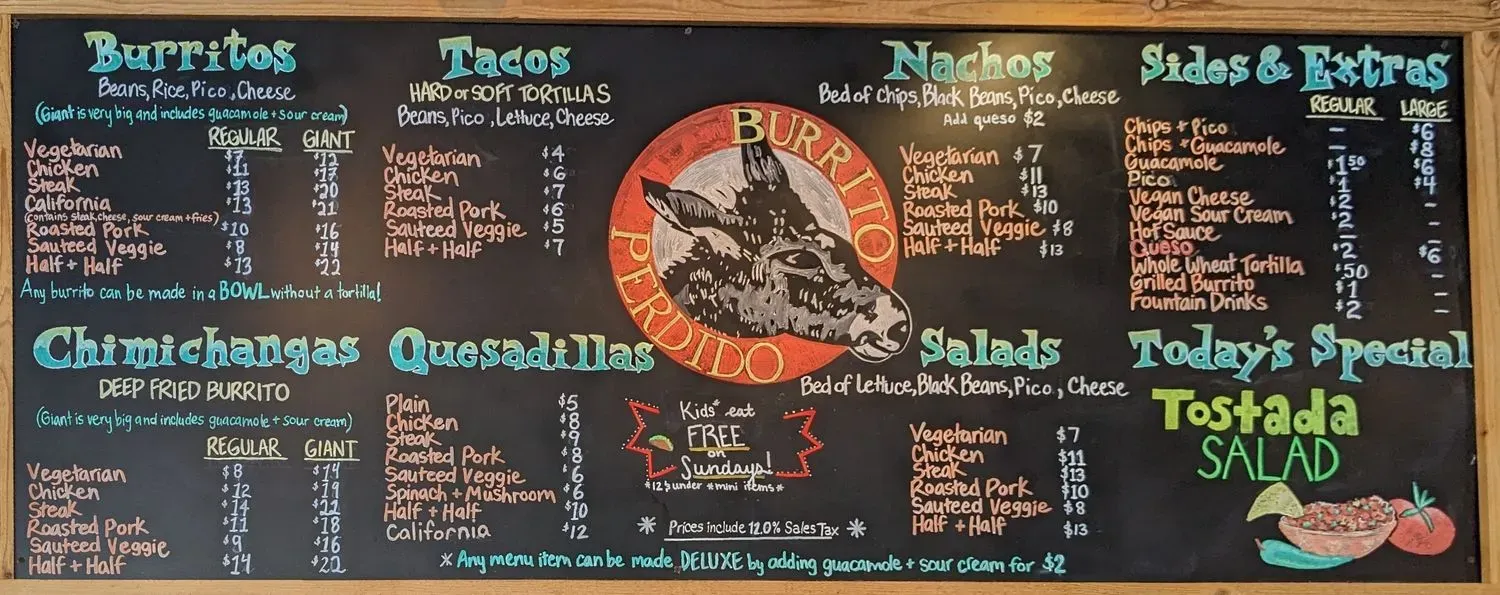 Burritos
Beans, Rice, Pico, Cheese
(Giant is very big and includes guacamole + sour cream)
REGULAR GIANT
Vegetarian $7 $12
Chicken $11 $17
Steak $13 $20
California $13 $21
(contains steak, cheese, sour cream + fries)
Roasted Pork $10 $16
Sauteed Veggie $8 $14
Half + Half $13 $22
Any burrito can be made in a BOWL without a tortilla!
Chimichangas
DEEP FRIED BURRITO
(Giant is very big and includes guacamole + sour cream)
REGULAR GIANT
Vegetarian $8 $14
Chicken $12 $19
Steak $14 $22
Roasted Pork $11 $18
Sauteed Veggie $9 $16
Half + Half $14 $22
Tacos
HARD or SOFT TORTILLAS
Beans, Pico, Lettuce, Cheese
Vegetarian $4
Chicken $6
Steak $7
Roasted Pork $6
Sauteed Veggie $5
Half + Half $7
Quesadillas
Plain $5
Chicken $8
Steak $9
Roasted Pork $8
Sauteed Veggie $6
Spinach + Mushroom $6
Half + Half $10
California $12
BURRITO
PERDIDO
Kids* eat
FREE
on
Sundays!
*12 & under *mini items*
* Prices include 12.0% Sales Tax *
* Any menu item can be made DELUXE by adding guacamole + sour cream for $2
Nachos
Bed of Chips, Black Beans, Pico, Cheese
Add queso $2
Vegetarian $7
Chicken $11
Steak $13
Roasted Pork $10
Sauteed Veggie $8
Half + Half $13
Salads
Bed of Lettuce, Black Beans, Pico, Cheese
Vegetarian $7
Chicken $11
Steak $13
Roasted Pork $10
Sauteed Veggie $8
Half + Half $13
Sides & Extras
REGULAR LARGE
Chips + Pico – $6
Chips + Guacamole – $8
Guacamole $1.50 $6
Pico $1 $4
Vegan Cheese $2 –
Vegan Sour Cream $2 –
Hot Sauce – –
Queso $2 $6
Whole Wheat Tortilla $.50 –
Grilled Burrito $1 –
Fountain Drinks $2 –
Today's Special
Tostada
SALAD